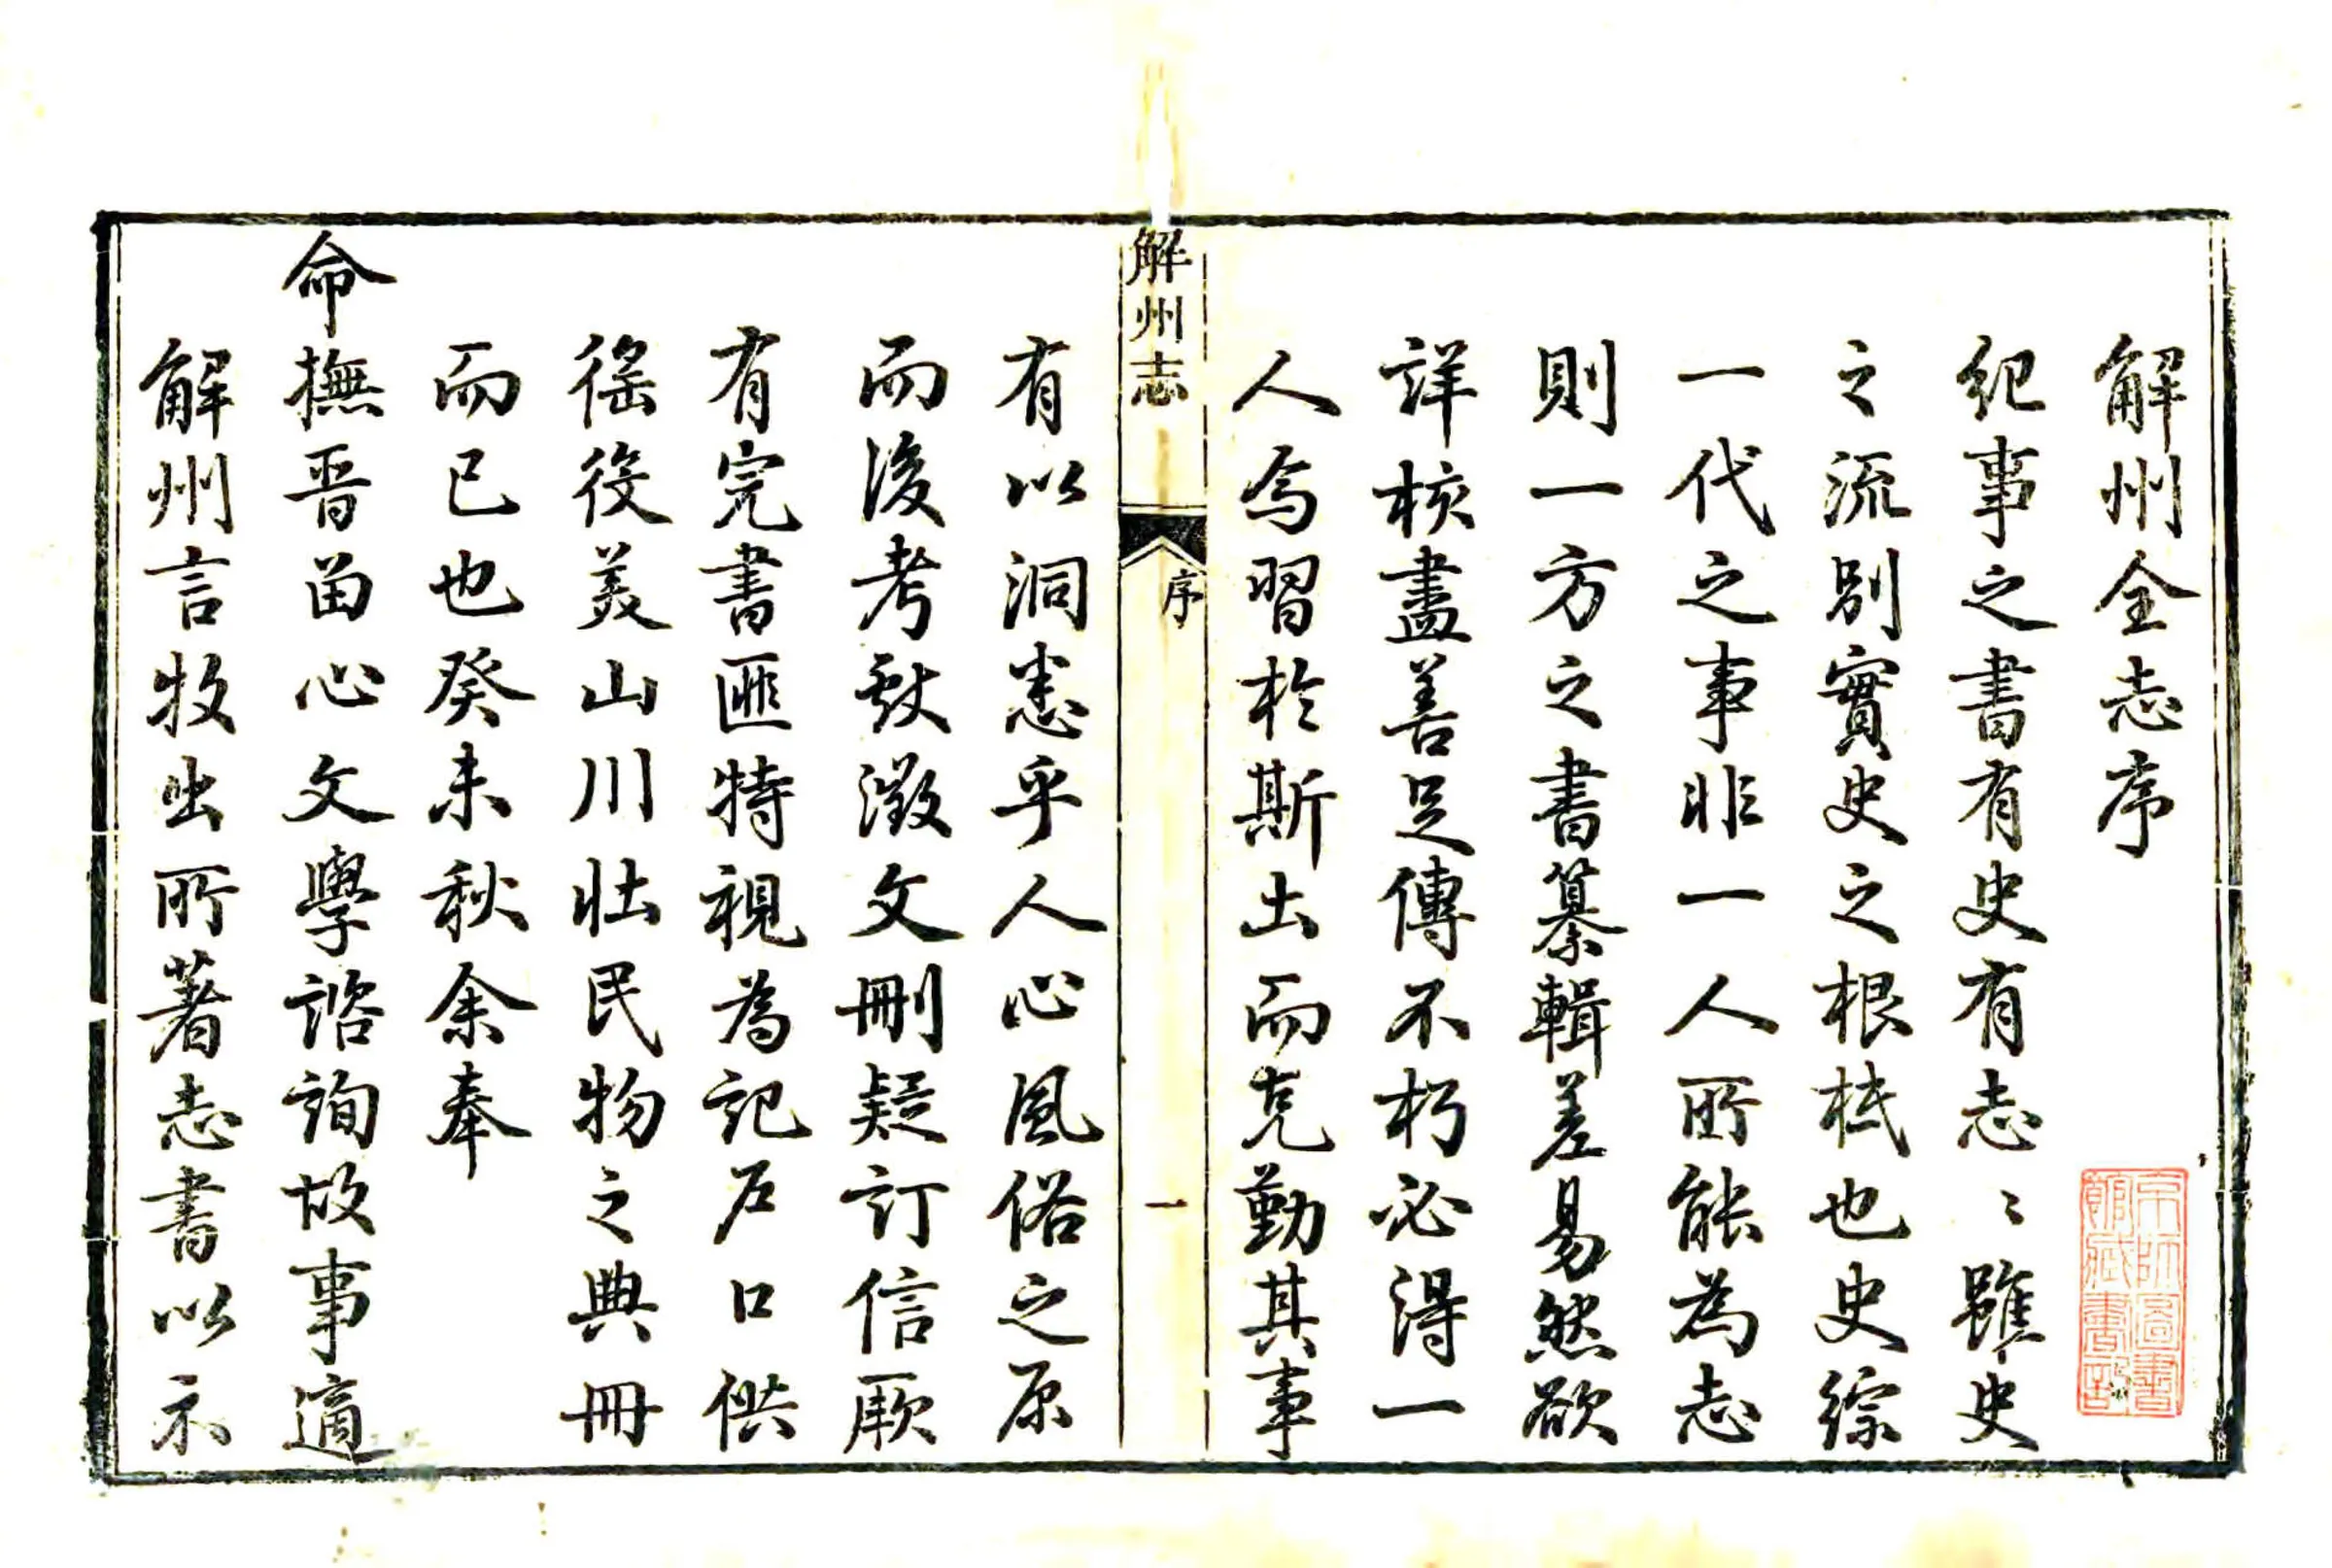 解州全志序
紀事之書有史有志〻雖史
之流別實史之根柢也史綜
一代之事非一人所能為志
則一方之書纂輯差易然欲
詳核盡善足傳不朽必得一
人焉習於斯土而克勤其事
解州志
序
一
有以洞悉乎人心風俗之原
而後考獻徵文刪疑訂信厥
有完書匪特視為記戶口供
徭役美山川壯民物之典冊
而已也癸未秋余奉
命撫晉留心文學諮詢故事適
解州言牧出所著志書以示
京師圖書
館藏書記